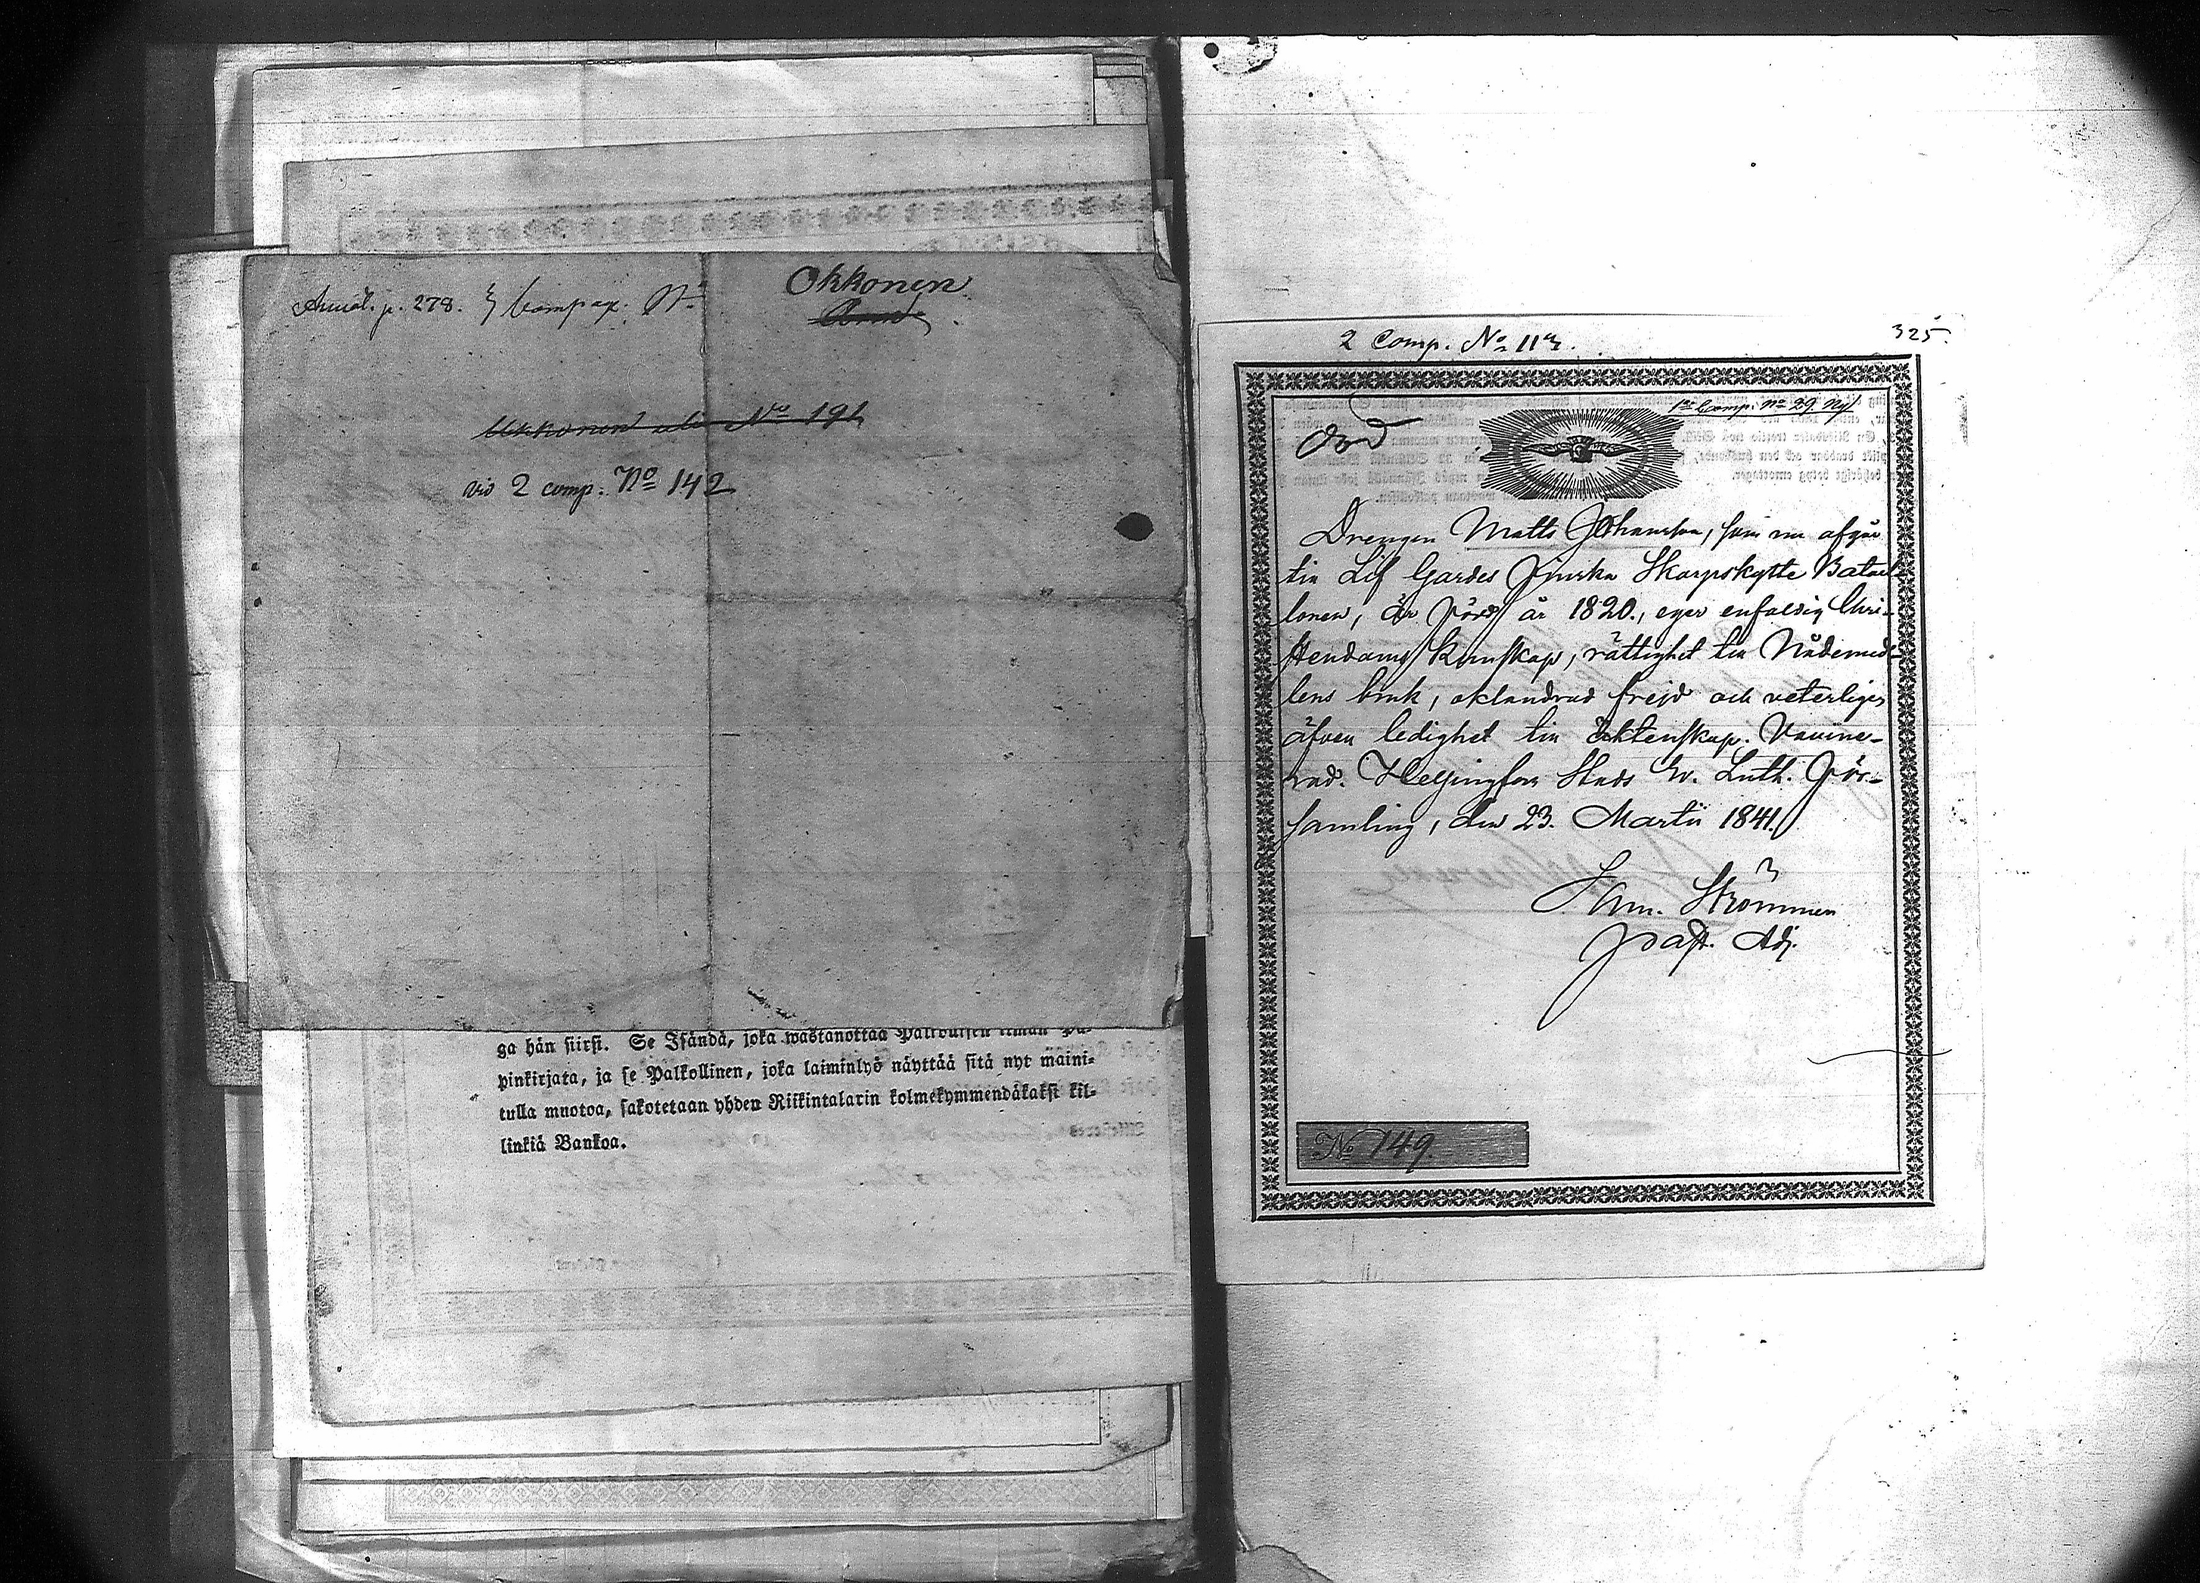 Annot. p. 278. Compag. No
Okkonen
Ukkonen No 191
vid 2 comp. No 142
ga hän siirsi. Se Isändä, joka wastanottaa Palkollisen ilman Pa-
pinkirjata, ja se Palkollinen, joka laiminlyö näyttää sitä nyt maini-
tulla muotoa, sakotetaan yhden Riikintalarin kolmekymmendäkaksi kil-
linkiä Bankoa.
2 Comp. No 113.
325.
1e Comp. No 29. Nyl
Ord
Drengen Matts Johansson, som nu afgår
till Lif Gardes Finska Skarpskytte Batail-
lonen, är född år 1820, eger enfaldig Chri-
stendoms kunskap, rättighet till Nådemed-
lens bruk, oklandrad frejd och veterligen
äfven ledighet till äktenskap. Vaccine-
rad. Helsingfors Stads Ev. Luth. För-
samling, den 23. Martii 1841.
Herm. Strömmer
past. Adj.
No 149.